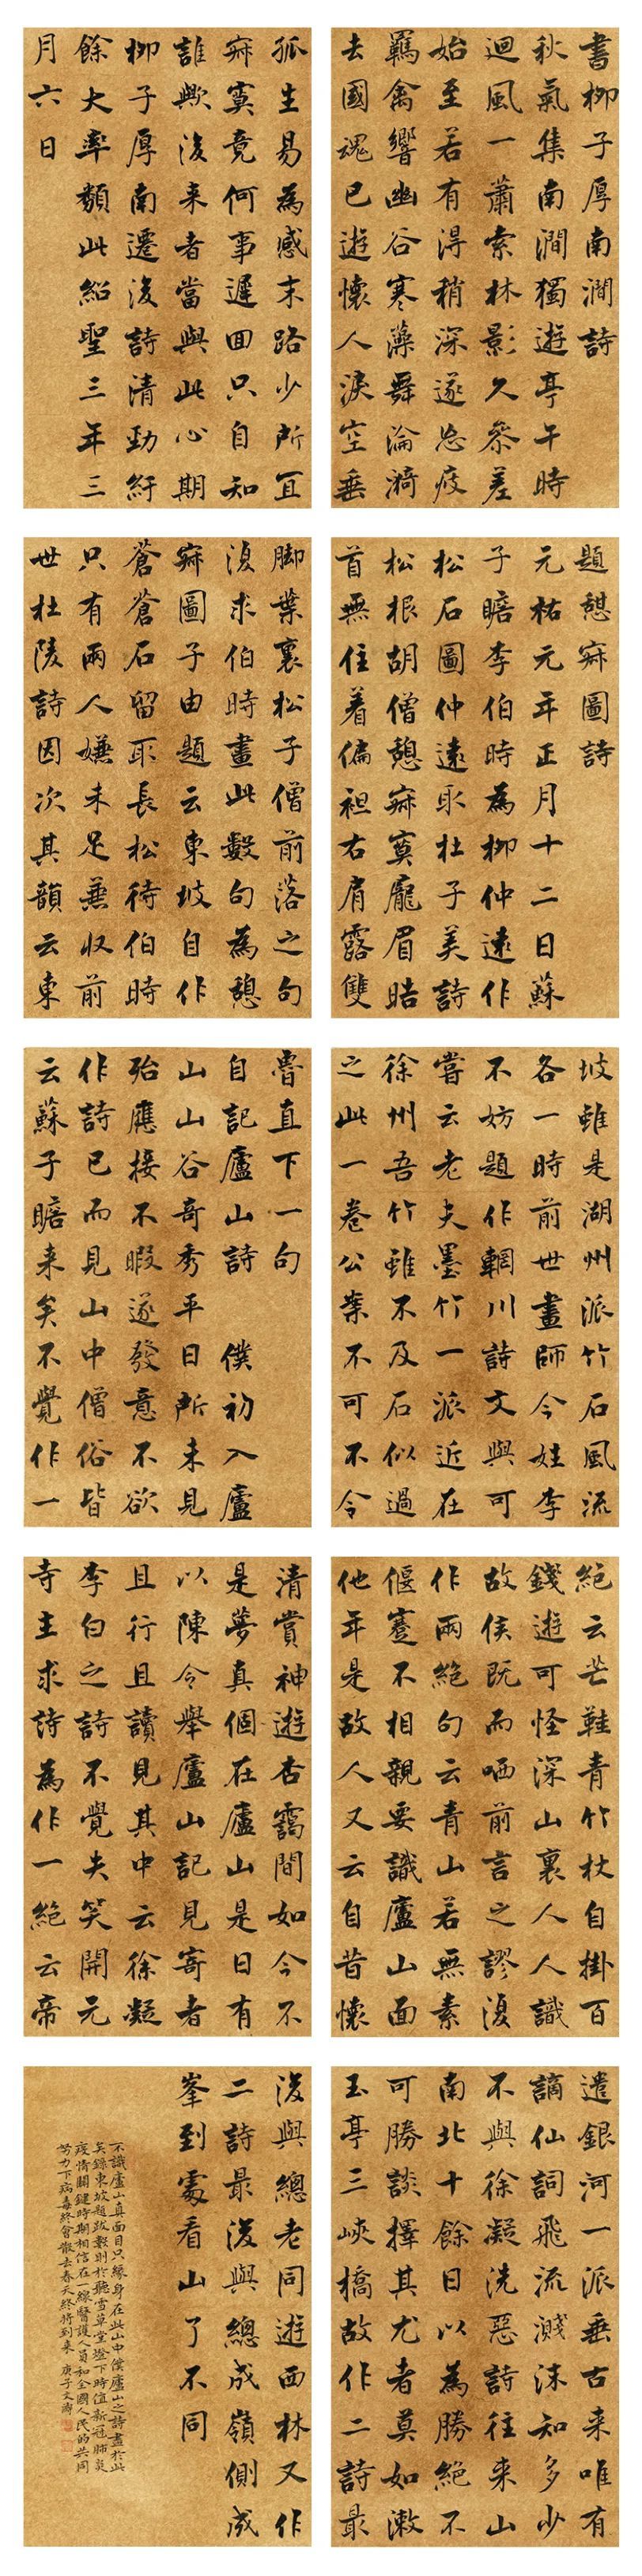 書柳子厚南澗詩
秋氣集南澗獨遊亭午時
迴風一蕭索林影久參差
始至若有得稍深遂忘疲
羈禽響幽谷寒藻舞淪漪
去國魂已遊懷人淚空垂
孤生易為感末路少所宜
寂寞竟何事遲回只自知
誰歟後来者當與此心期
柳子厚南遷後詩清勁紆
餘大率類此紹聖三年三
月六日
題憩寂圖詩
元祐元年正月十二日蘇
子瞻李伯時為柳仲遠作
松石圖仲遠取杜子美詩
松根胡僧憩寂寞龐眉皓
首無住着偏袒右肩露雙
脚葉裏松子僧前落之句
復求伯時畫此數句為憩
寂圖子由題云東坡自作
蒼蒼石留取長松待伯時
只有兩人嫌未足兼收前
世杜陵詩因次其韻云東
坡雖是湖州派竹石風流
各一時前世畫師今姓李
不妨題作輞川詩文與可
嘗云老夫墨竹一派近在
徐州吾竹雖不及石似過
之此一卷公案不可不令
魯直下一句
自記廬山詩 僕初入廬
山山谷奇秀平日所未見
殆應接不暇遂發意不欲
作詩已而見山中僧俗皆
云蘇子瞻来矣不覺作一
絕云芒鞋青竹杖自掛百
錢遊可怪深山裏人人識
故侯既而哂前言之謬復
作兩絕句云青山若無素
偃蹇不相親要識廬山面
他年是故人又云自昔懷
清賞神遊杳靄間如今不
是夢真個在廬山是日有
以陳令舉廬山記見寄者
且行且讀見其中云徐凝
李白之詩不覺失笑開元
寺主求詩為作一絕云帝
遣銀河一派垂古来唯有
謫仙詞飛流濺沫知多少
不與徐凝洗惡詩往来山
南北十餘日以為勝絕不
可勝談擇其尤者莫如漱
玉亭三峽橋故作二詩最
後與總老同遊西林又作
二詩最後與總成嶺側成
峯到處看山了不同
不識廬山真面目只緣身在此山中僕廬山之詩盡於此
矣錄東坡題跋數則於聽雪草堂燈下時值新冠肺炎
疫情關鍵時期相信在一線醫護人員和全國人民的共同
努力下病毒終會散去春天終將到来 庚子文